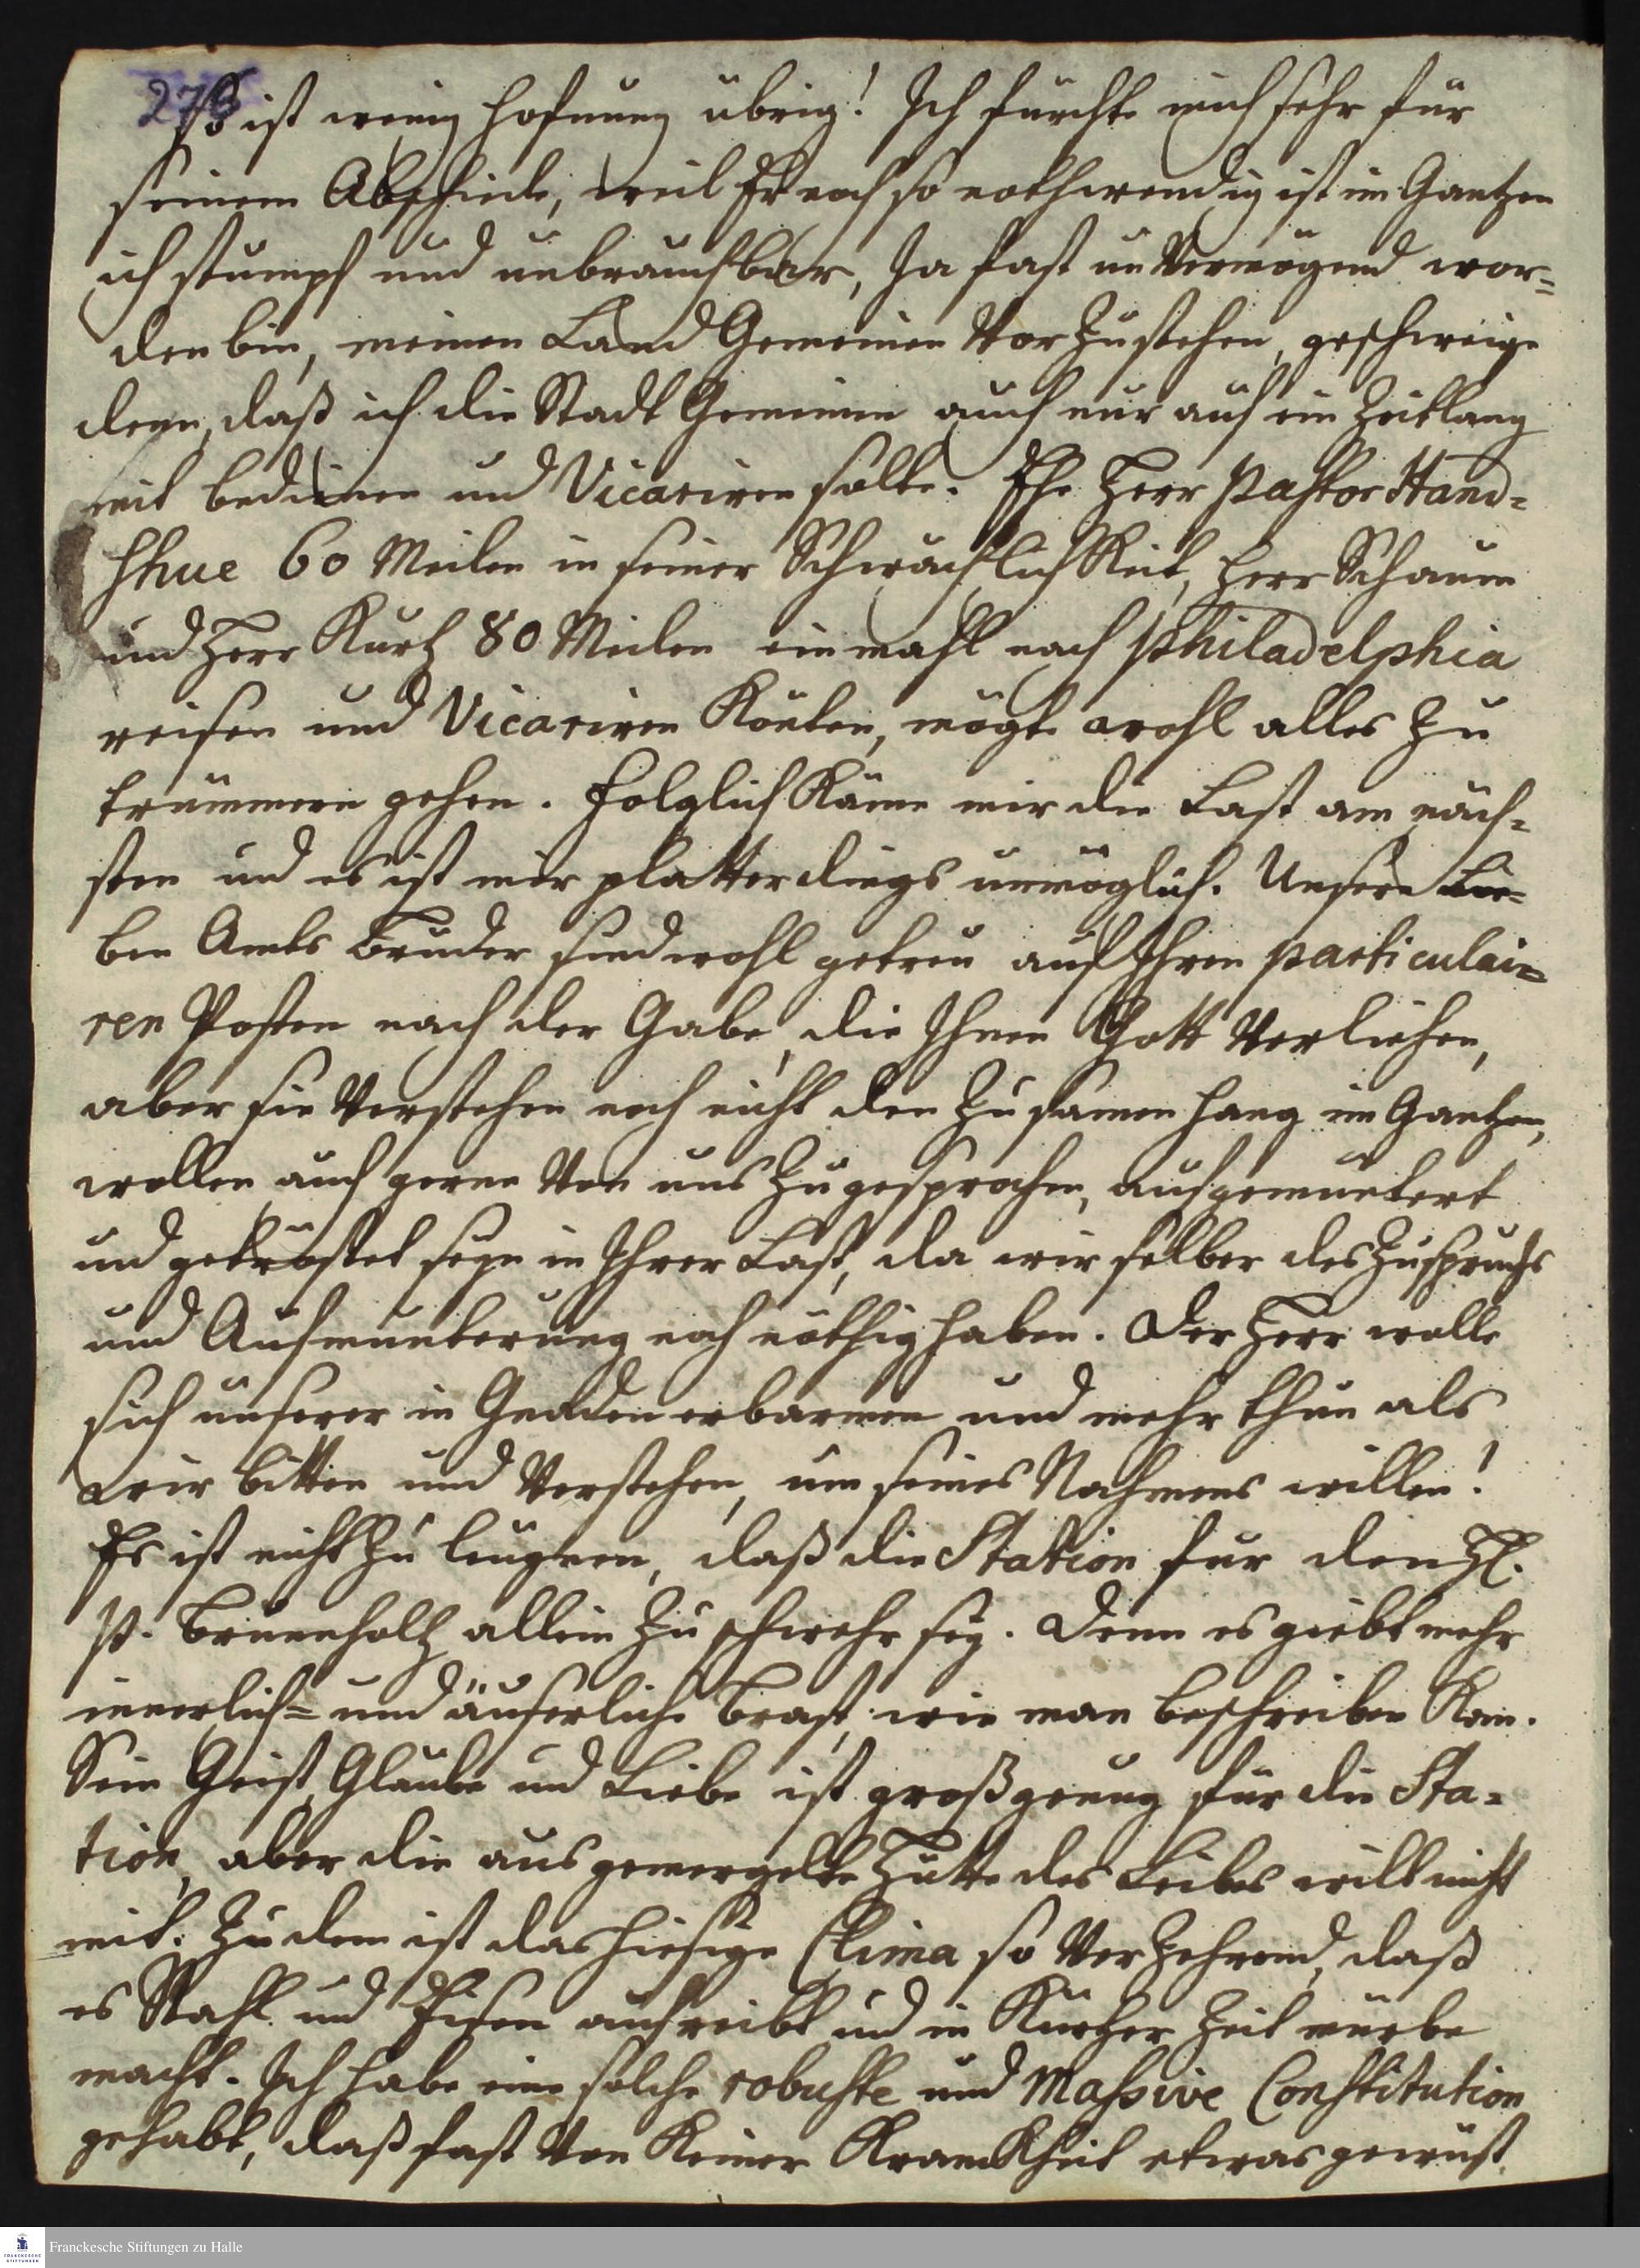 278
so ist wenig Hofnung übrig! Ich fürchte mich sehr für
seinem Abschiede, weil Er noch so nothwendig ist im Gantzen
ich stumpf und unbrauchbar, Ja fast unVermögend wor=
den bin, meinen Land Gemeinen Vorzustehen, geschweige
denn, daß ich die Stadt Gemeine auch nur auf ein Zeitlang
mit bedienen und Vicariren solte. Ehe Herr Pastor Hand=
shue 60 Meilen in seiner Schwächlichkeit, Herr Schaum
und Herr Kurtz 80 Meilen einmahl nach Philadelphia
reisen und Vicariren Könten, mögte wohl alles zu
trümmern gehen. Folglich Käme mir die Last am näch=
sten und es ist mir platterdings unmöglich. Unsere Lie=
ben Amts Brüder sind wohl getreu auf Ihren particulai=
ren Posten nach der Gabe, die Ihnen Gott Verliehen,
aber sie Verstehen noch nicht den Zusamenhang im Gantzen,
wollen auch gerne Von uns Zugesprochen, aufgemuntert
und getröstet seyn in Ihrer Last, da wir selber des Zuspruchs
und Aufmunterung noch nöthig haben. Der Herr wolle
sich unserer in Gnaden erbarmen und mehr thun als
wir bitten und Verstehen, um seines Nahmens willen!
Es ist nicht zu leugnen, daß die Station für den H.
P. Brunnholtz allein zu schwehr sey. Denn es giebt mehr
innerlich= und äuserliche Brast, wie man beschreiben Kan.
Sein Geist, Glaube und Liebe ist groß genug für die Sta=
tion, aber die ausgemergelte Hütte des Leibes will nicht
mit. Zu dem ist das hiesige Clima so Verzehrend, daß
es Stahl und Eisen aufreibt und in Kurtzer Zeit mürbe
macht. Ich habe eine solche robuste und Massive Constitution
gehabt, daß fast Von Keiner Kranckheit etwas gewust
Franckesche Stiftungen zu Halle